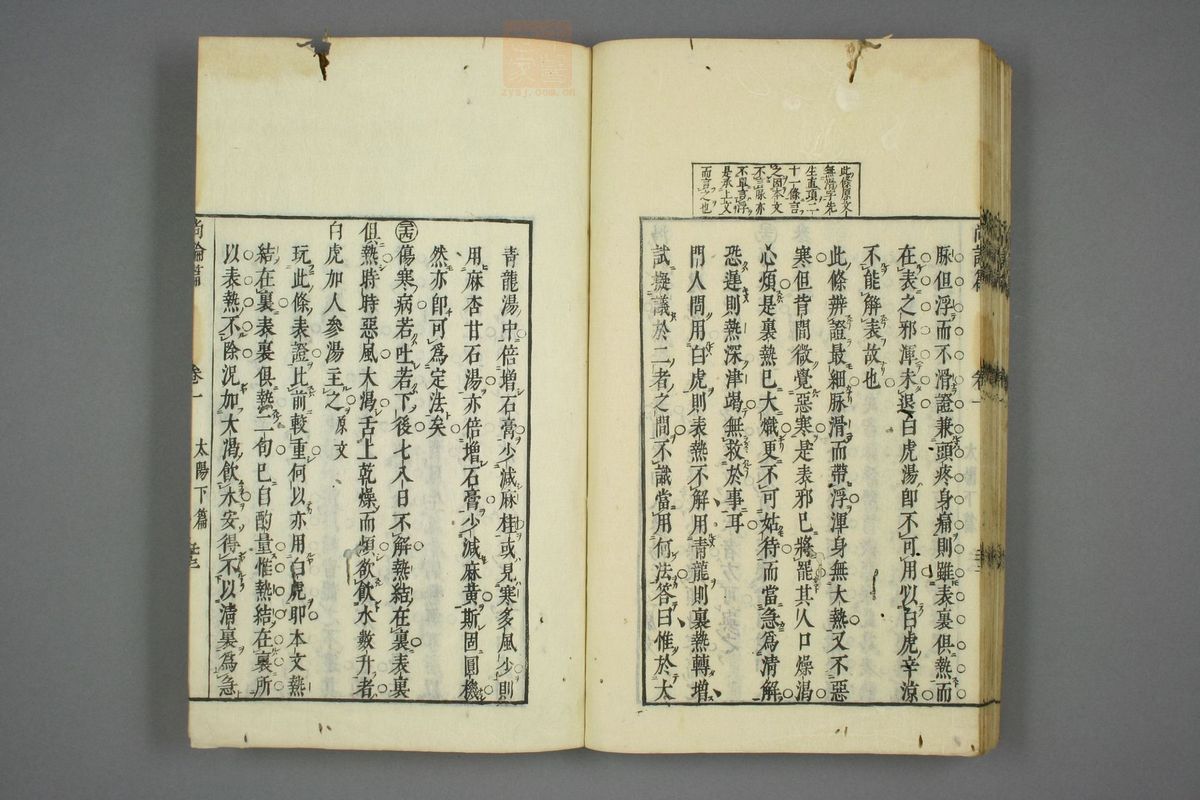 此條原文
無滑字先
生直項二
十一條言
之因本文
不言脉亦
不單言浮
是承上文
而言之也
脉但浮而不滑證兼頭疼身痛則雖表裏俱熱而
在表之邪渾未退白虎湯卽不可用以白虎辛涼
不能解表故也
此條辨證最細脉滑而帶浮渾身無大熱又不惡
寒但背間微覺惡寒是表邪已將罷其人口燥渴
心煩是裏熱已大熾更不可姑待而當急爲清解
恐遲則熱深津竭無救於事耳
門人問用白虎則表熱不解用青龍則裏熱轉增
試擬議於二者之間不識當用何法答曰惟於大
青龍湯中倍增石膏少減麻桂或見寒多風少則
用麻杏甘石湯亦倍增石膏少減麻黄斯固圓機
然亦卽可爲定法矣
傷寒病若吐若下後七八日不解熱結在裏表裏
俱熱時時惡風大渴舌上乾燥而煩欲飲水數升者
白虎加人參湯主之 原文
玩此條表證比前較重何以亦用白虎卽本文熱
結在裏表裏俱熱二句已自酌量惟熱結在裏所
以表熱不除況加大渴飲水安得不以清裏爲急
尚論篇 卷一 太陽下篇
zysj.com.cn